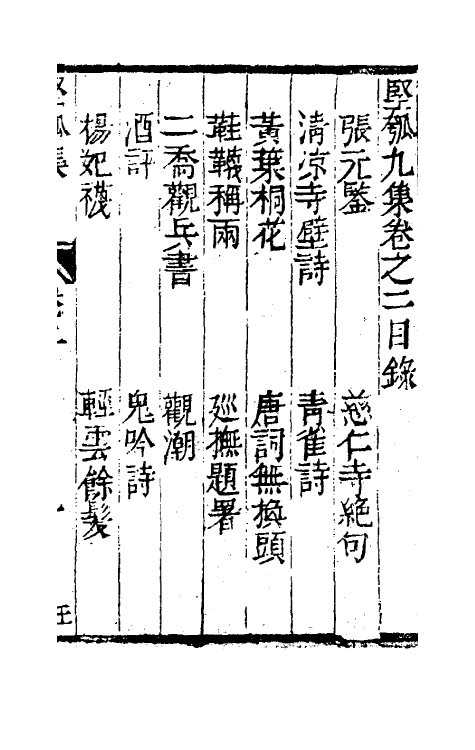 堅瓠九集卷之二目錄
張元鑒　慈仁寺絕句
清凉寺壁詩　青雀詩
黃葉桐花　唐詞無換頭
鞋韈稱兩　廵撫題署
二喬觀兵書　觀潮
酒評　鬼吟詩
楊妃襪　輕雲餘髮